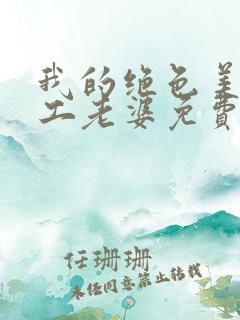 我的绝色美
工老婆免费
任珊珊
未经同意禁止转载